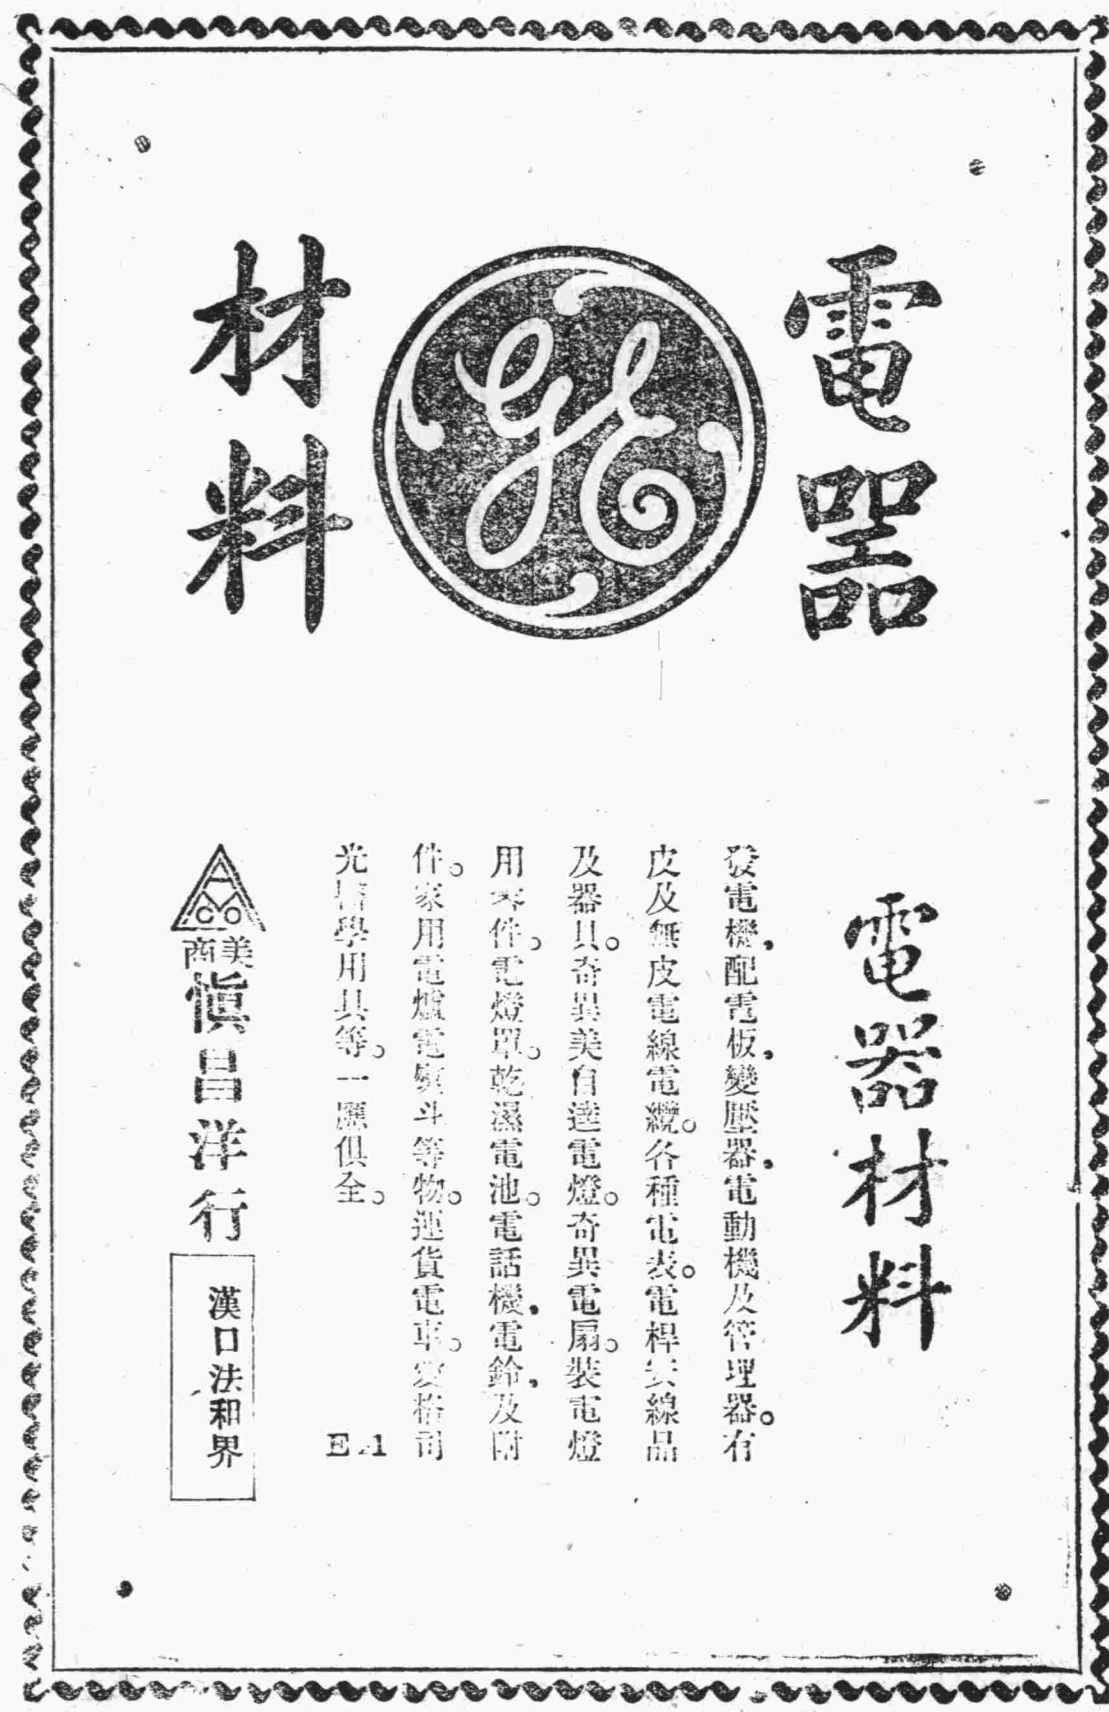 電器
GE
材料
電器材料
發電機，配電板，變壓器，電動機及管理器。有
皮及無皮電線電纜。各種電表。電桿安線品
及器具。奇異美自達電燈。奇異電扇。裝電燈
用零件。電燈罩。乾濕電池。電話機，電鈴，及附
件。家用電爐電熨斗等物。運貨電車。愛格司
光醫學用具等。一應俱全。
E-1
AM
CO
商美
慎昌洋行
漢口法和界